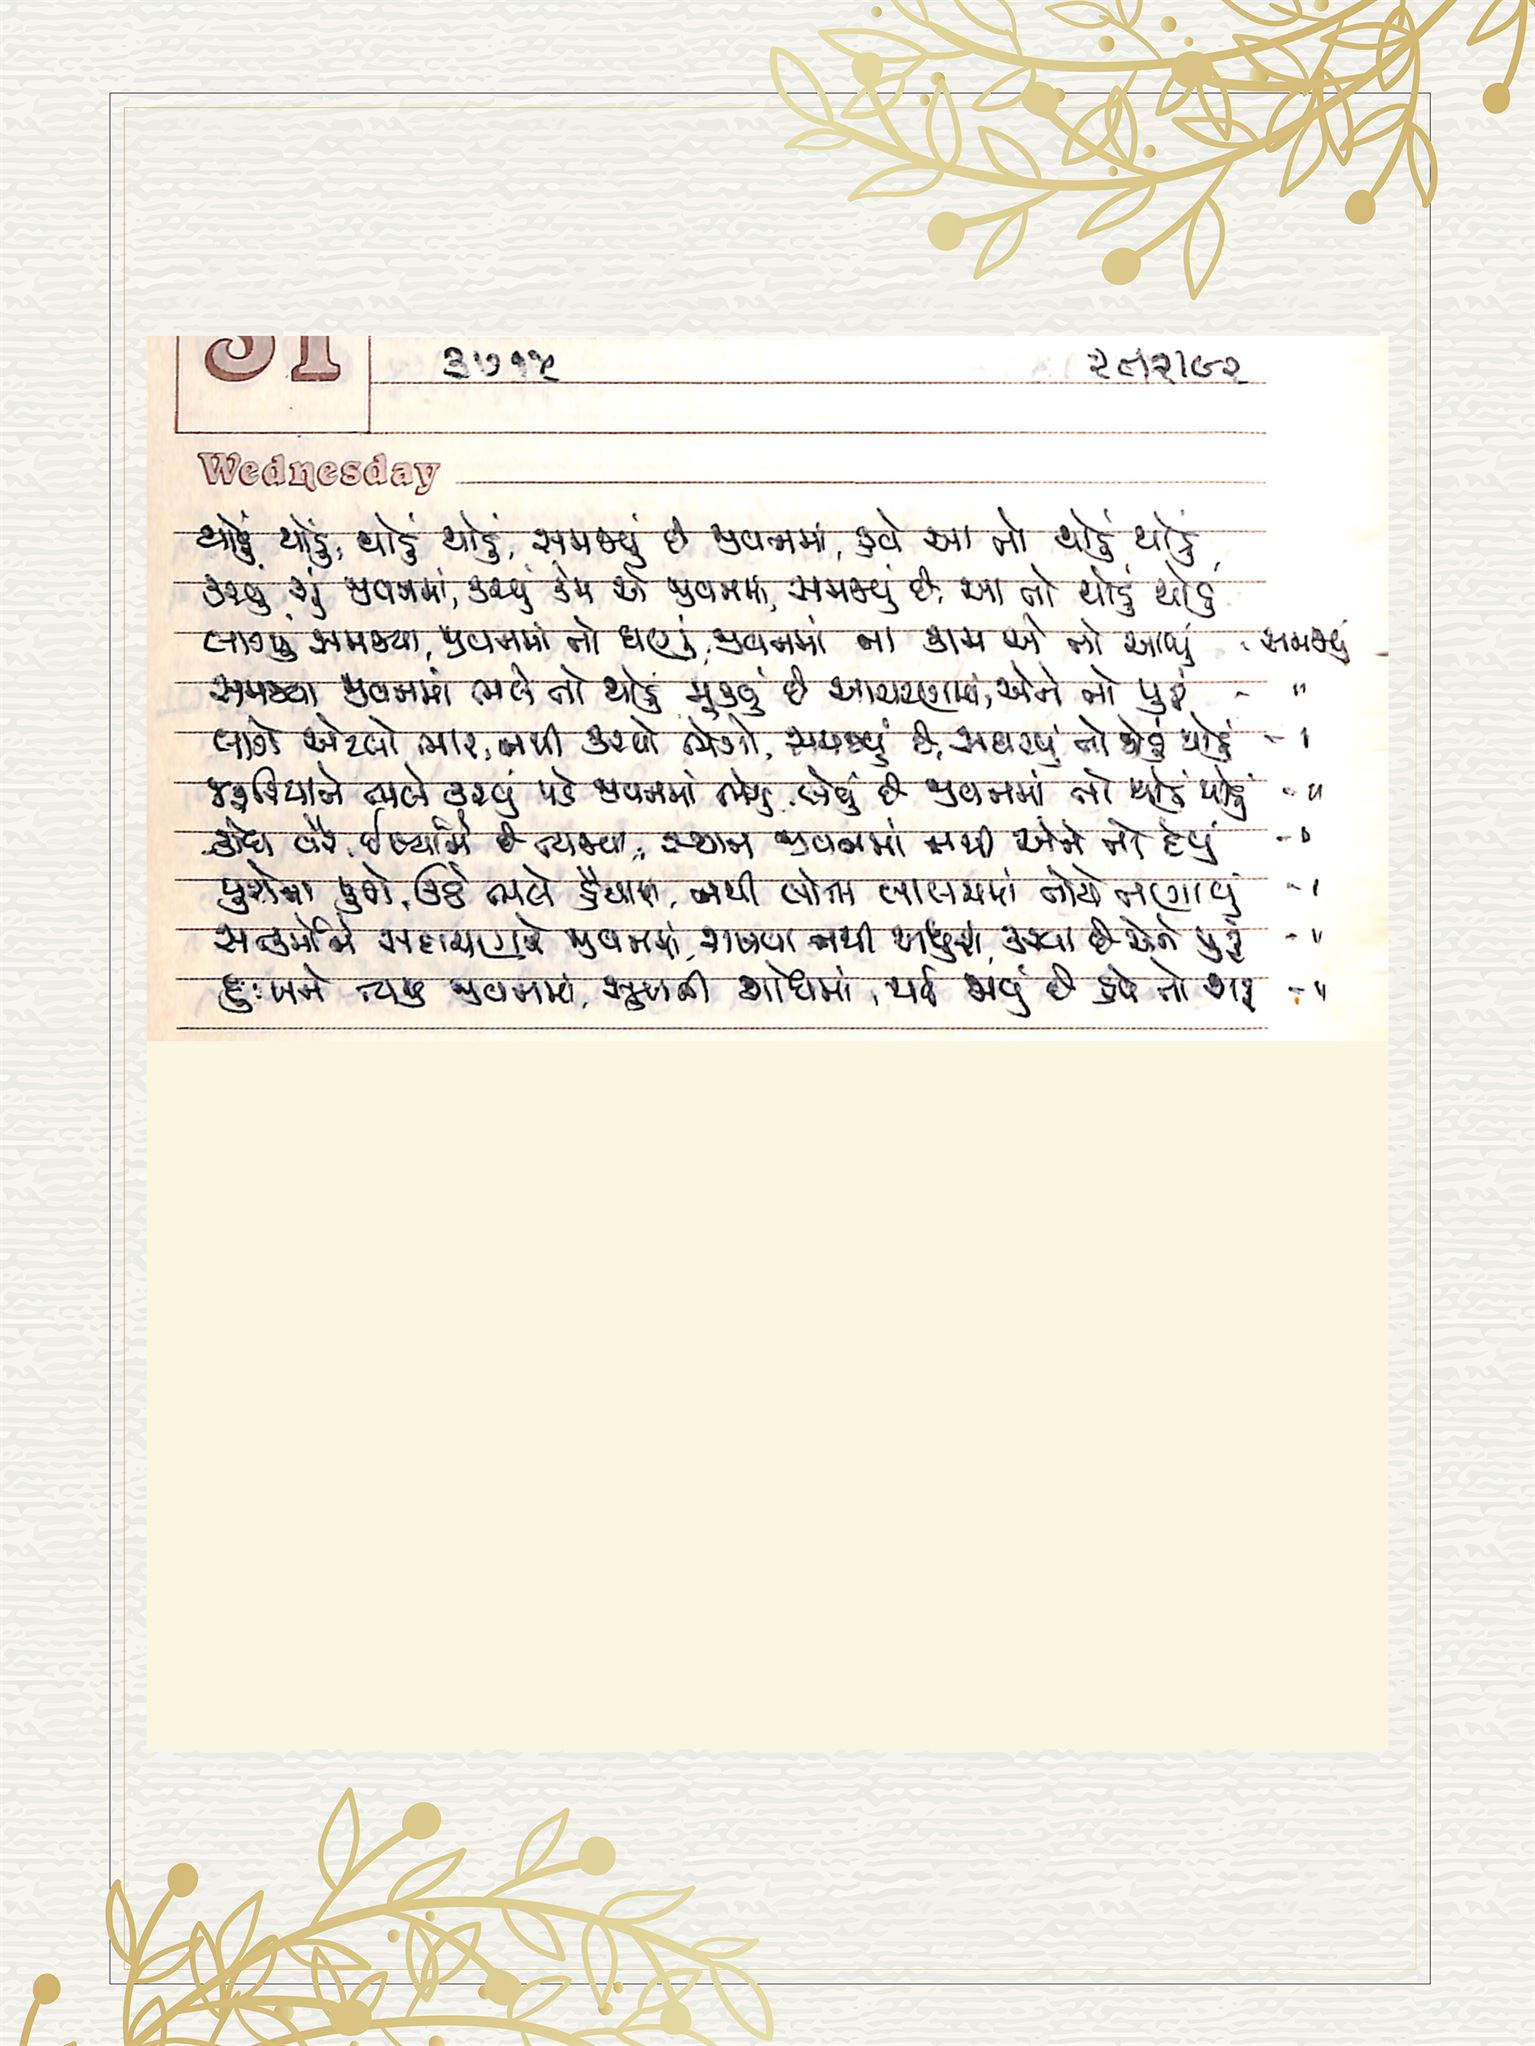 31
૩૭૧૫ ૨૯/૨/૯૨
Wednesday
થોડું થોડું, થોડું થોડું, સમજ્યું છે જીવનમાં, હવે આ તો થોડું થોડું
કરવું શું જીવનમાં, કરવું કેમ એ જીવનમાં, સમજ્યું છે, આ તો થોડું થોડું
લાગ્યું સમજ્યા, જીવનમાં તો ઘણું, જીવનમાં ના કામ એ તો આવ્યું - સમજ્યું
સમજ્યા જીવનમાં ભલે તો થોડું મૂકવું છે આચરણમાં, એને તો પુરું - "
લાગે એટલો ભાર, નથી કરવો ભેગો, સમજ્યું છે, સમજવું તો થોડું થોડું - "
ભલે કરવું પડે જીવનમાં ભેગું, લેવું છે જીવનમાં તો થોડું થોડું - "
ક્રોધ વેર ઈર્ષ્યાને છે ત્યજવા, સ્થાન જીવનમાં નથી એને તો દેવું - "
ઉઠે ભલે હૈયામાં, નથી લોભ લાલચમાં તોયે તણાવું - "
સત્કર્મોને સદાચારને જીવનમાં, રાખવા નથી અધુરા, કરવા છે એને પુરું - "
દુઃખને ત્યજી જીવનમાં, સુખની શોધમાં, થઈ જવું છે હવે તો શરૂ - "